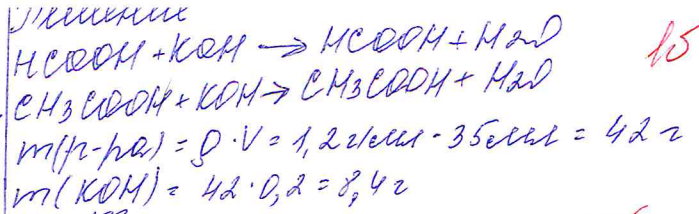 Решение
HCOOH + KOH → HCOOH + H2O 1б
CH3COOH + KOH → CH3COOH + H2O
m(р-ра) = ρ · V = 1,2 г/мл · 35 мл = 42 г
m(KOH) = 42 · 0,2 = 8,4 г